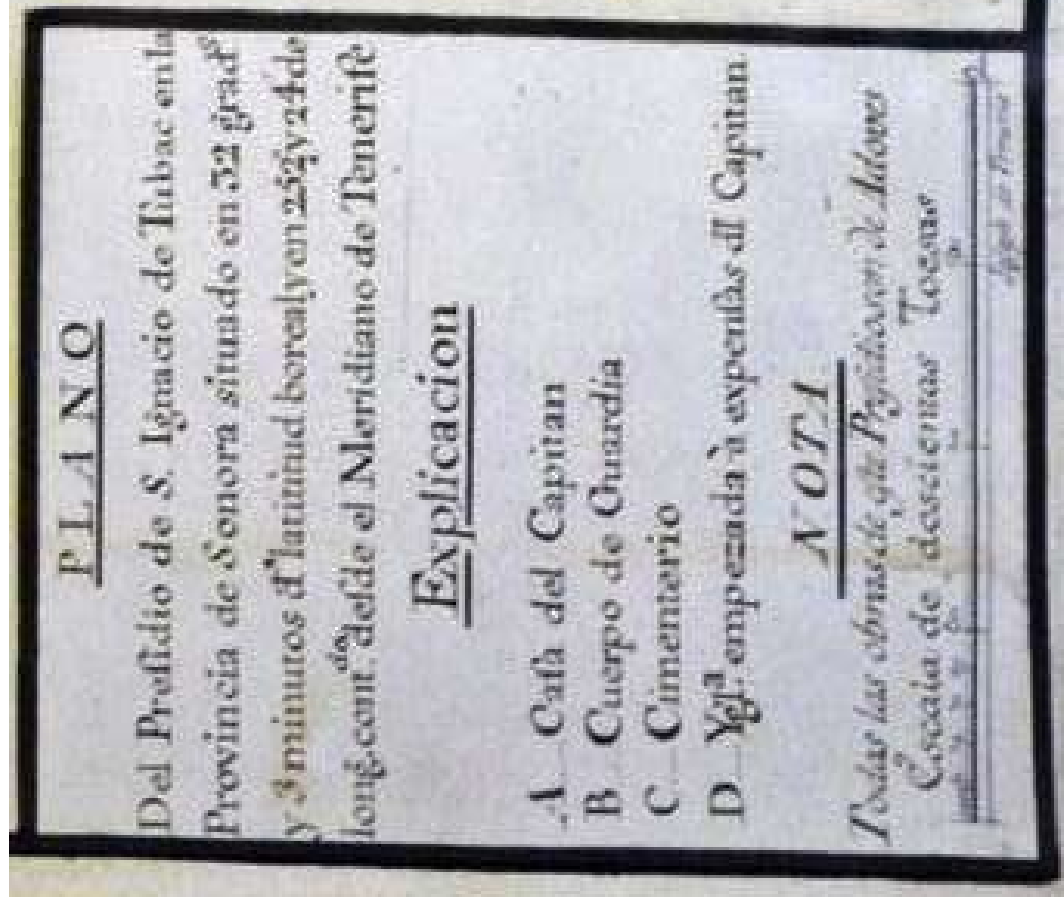 PLANO
Del Presidio de S. Ignacio de Tubac en la
Provincia de Sonora situado en 32 grad.s
y 3 minutos d.e latitud boreal y en 252 y 24 de
long. cont.do desde el Meridiano de Tenerife
Explicacion
A Casa del Capitan
B Cuerpo de Guardia
C Cimenterio
D Ygl.a empezada à expensas dl Capitan
NOTA
Todas las obras de este Presidio son de Adoves
Escala de doscientas Toesas